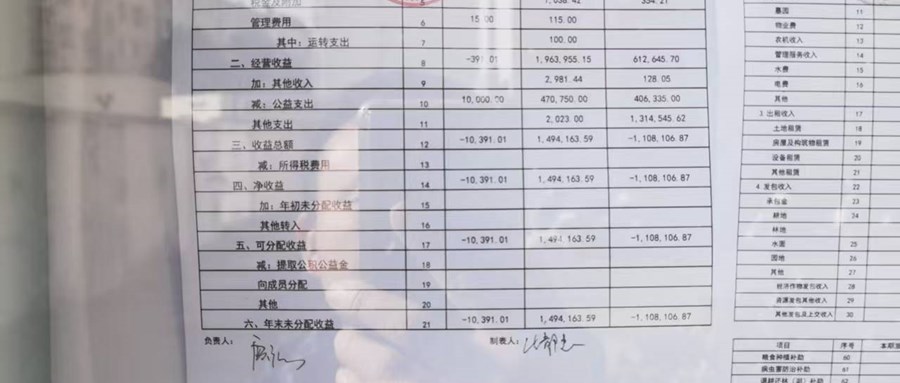 税金及附加 1,038.42 334.21
管理费用 6 15.00 115.00
其中：运转支出 7 100.00
二、经营收益 8 -391.01 1,963,955.15 612,645.70
加：其他收入 9 2,981.44 128.05
减：公益支出 10 10,000.00 470,750.00 406,335.00
其他支出 11 2,023.00 1,314,545.62
三、收益总额 12 -10,391.01 1,494,163.59 -1,108,106.87
减：所得税费用 13
四、净收益 14 -10,391.01 1,494,163.59 -1,108,106.87
加：年初未分配收益 15
其他转入 16
五、可分配收益 17 -10,391.01 1,494,163.59 -1,108,106.87
减：提取公积公益金 18
向成员分配 19
其他 20
六、年末未分配收益 21 -10,391.01 1,494,163.59 -1,108,106.87
负责人： 制表人：
墓园 11
物业费 12
农机收入 13
管理服务收入 14
水费 15
电费 16
其他
3.出租收入 17
土地租赁 18
房屋及构筑物租赁 19
设备租赁 20
其他租赁 21
4.发包收入 22
承包金 23
耕地 24
林地
水面 25
园地 26
其他 27
经济作物发包收入 28
资源发包其他收入 29
其他发包及上交收入 30
项目 序号
粮食种植补助 60
病虫害防治补助 61
退耕还林（湖）补助 62